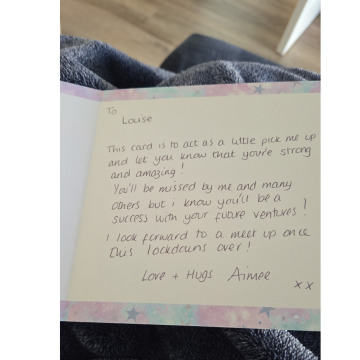 To
Louise
This card is to act as a little pick me up
and let you know that you're strong
and amazing!
You'll be missed by me and many
others but i know you'll be a
success with your future ventures!
I look forward to a meet up once
this lockdowns over!
Love + Hugs Aimee
x x